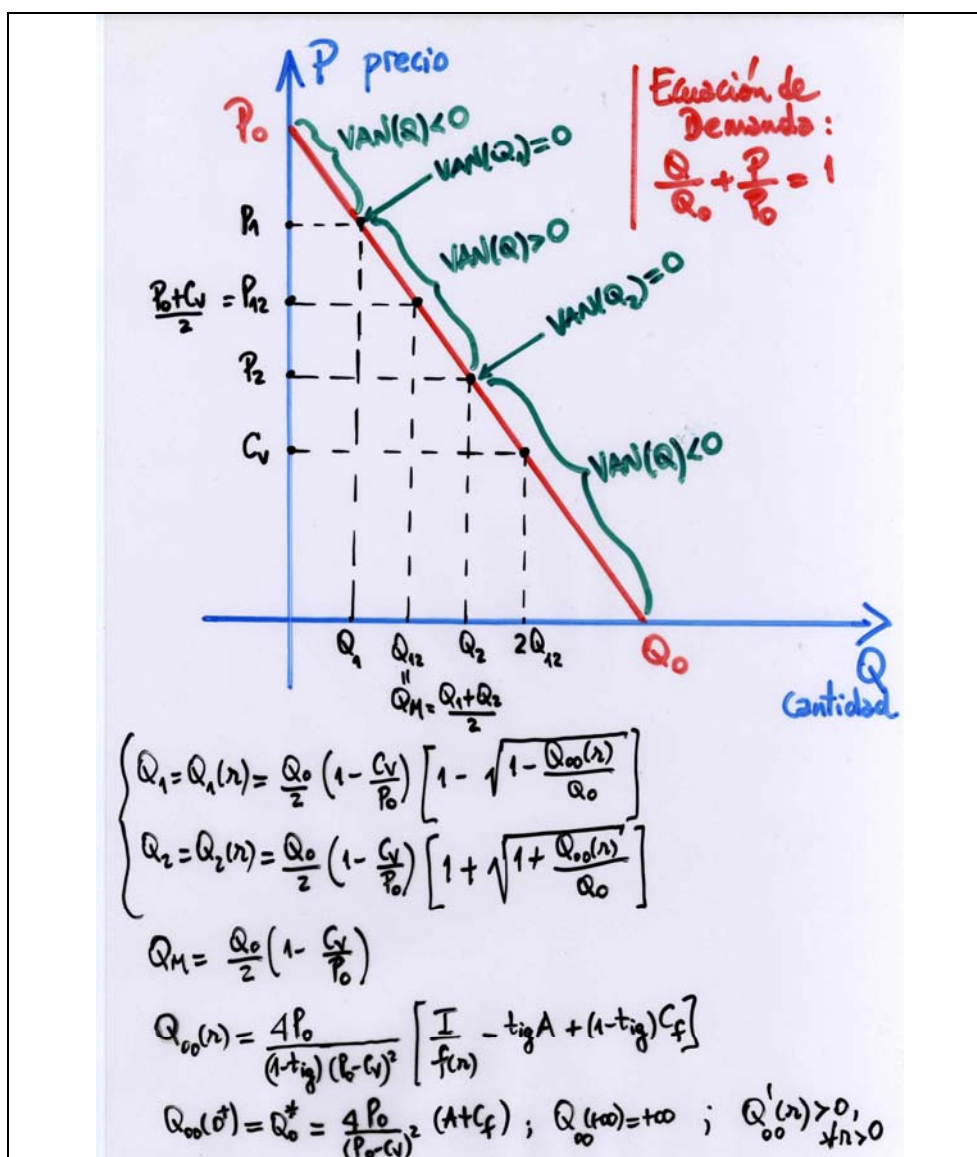 P precio
Ecuación de
Demanda:
Q/Q₀ + P/P₀ = 1
P₀
VAN(Q)<0
VAN(Q₁)=0
P₁
VAN(Q)>0
VAN(Q₂)=0
(P₀+Cᵥ)/2 = P₁₂
P₂
Cᵥ
VAN(Q)<0
Q₁ Q₁₂ Q₂ 2Q₁₂ Q₀ Q
"
Q_M = (Q₁+Q₂)/2
cantidad
Q₁=Q₁(r)= Q₀/2 (1 - Cᵥ/P₀) [1 - √(1 - Q₀₀(r)/Q₀)]
Q₂=Q₂(r)= Q₀/2 (1 - Cᵥ/P₀) [1 + √(1 + Q₀₀(r)/Q₀)]
Q_M = Q₀/2 (1 - Cᵥ/P₀)
Q₀₀(r) = 4P₀/((1-t_ig)(P₀-Cᵥ)²) [I/f(r) - t_ig A + (1-t_ig)C_f]
Q₀₀(0⁺) = Q₀* = 4P₀/(P₀-Cᵥ)² (A+C_f) ; Q₀₀(+∞)=+∞ ; Q₀₀'(r)>0, ∀r>0